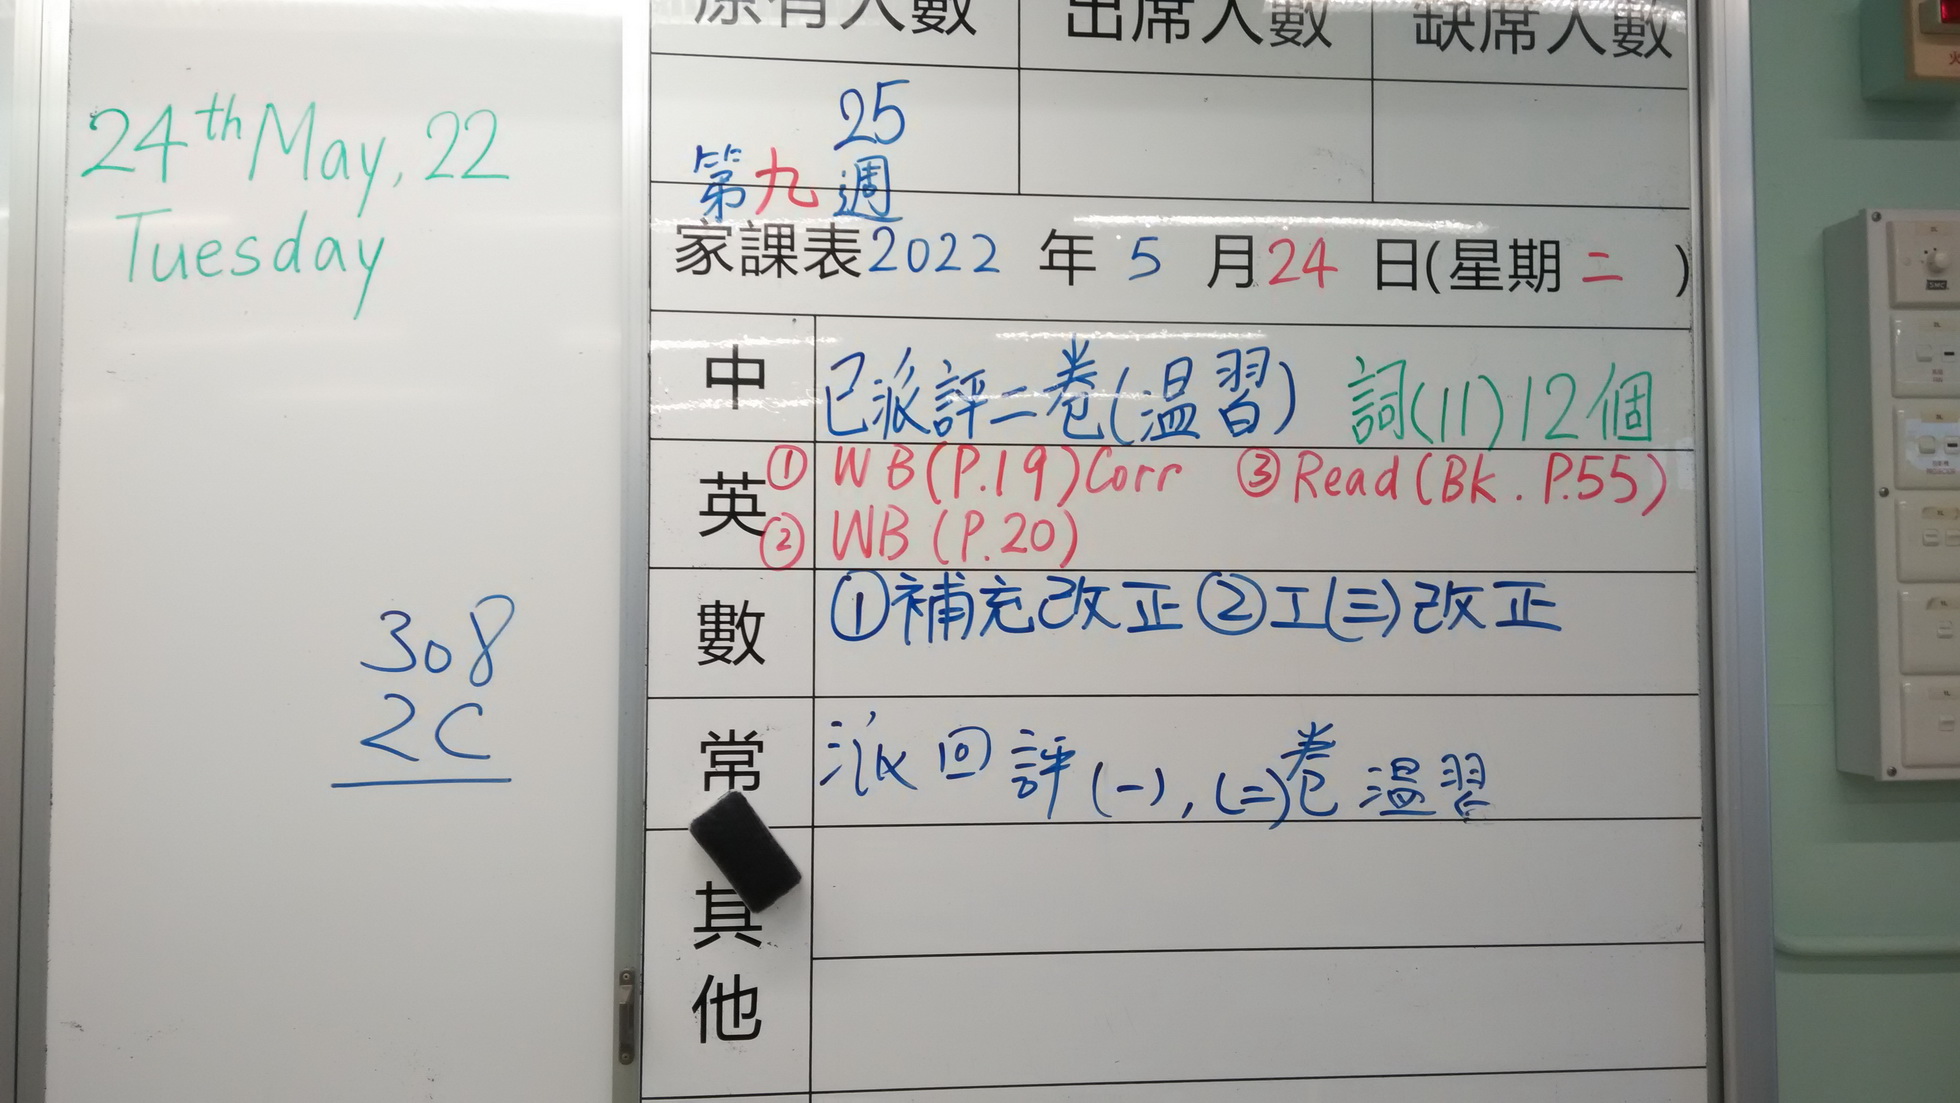 24th May, 22
Tuesday
308
2C
原有人數 出席人數 缺席人數
25
第九週
家課表2022 年 5 月24 日(星期 二 )
中 已派評二卷(温習) 詞(11)12個
英 ① WB(P.19)Corr ③Read(Bk. P.55)
② WB (P.20)
數 ①補充改正②工(三)改正
常 派回評(一),(二)卷温習
其他